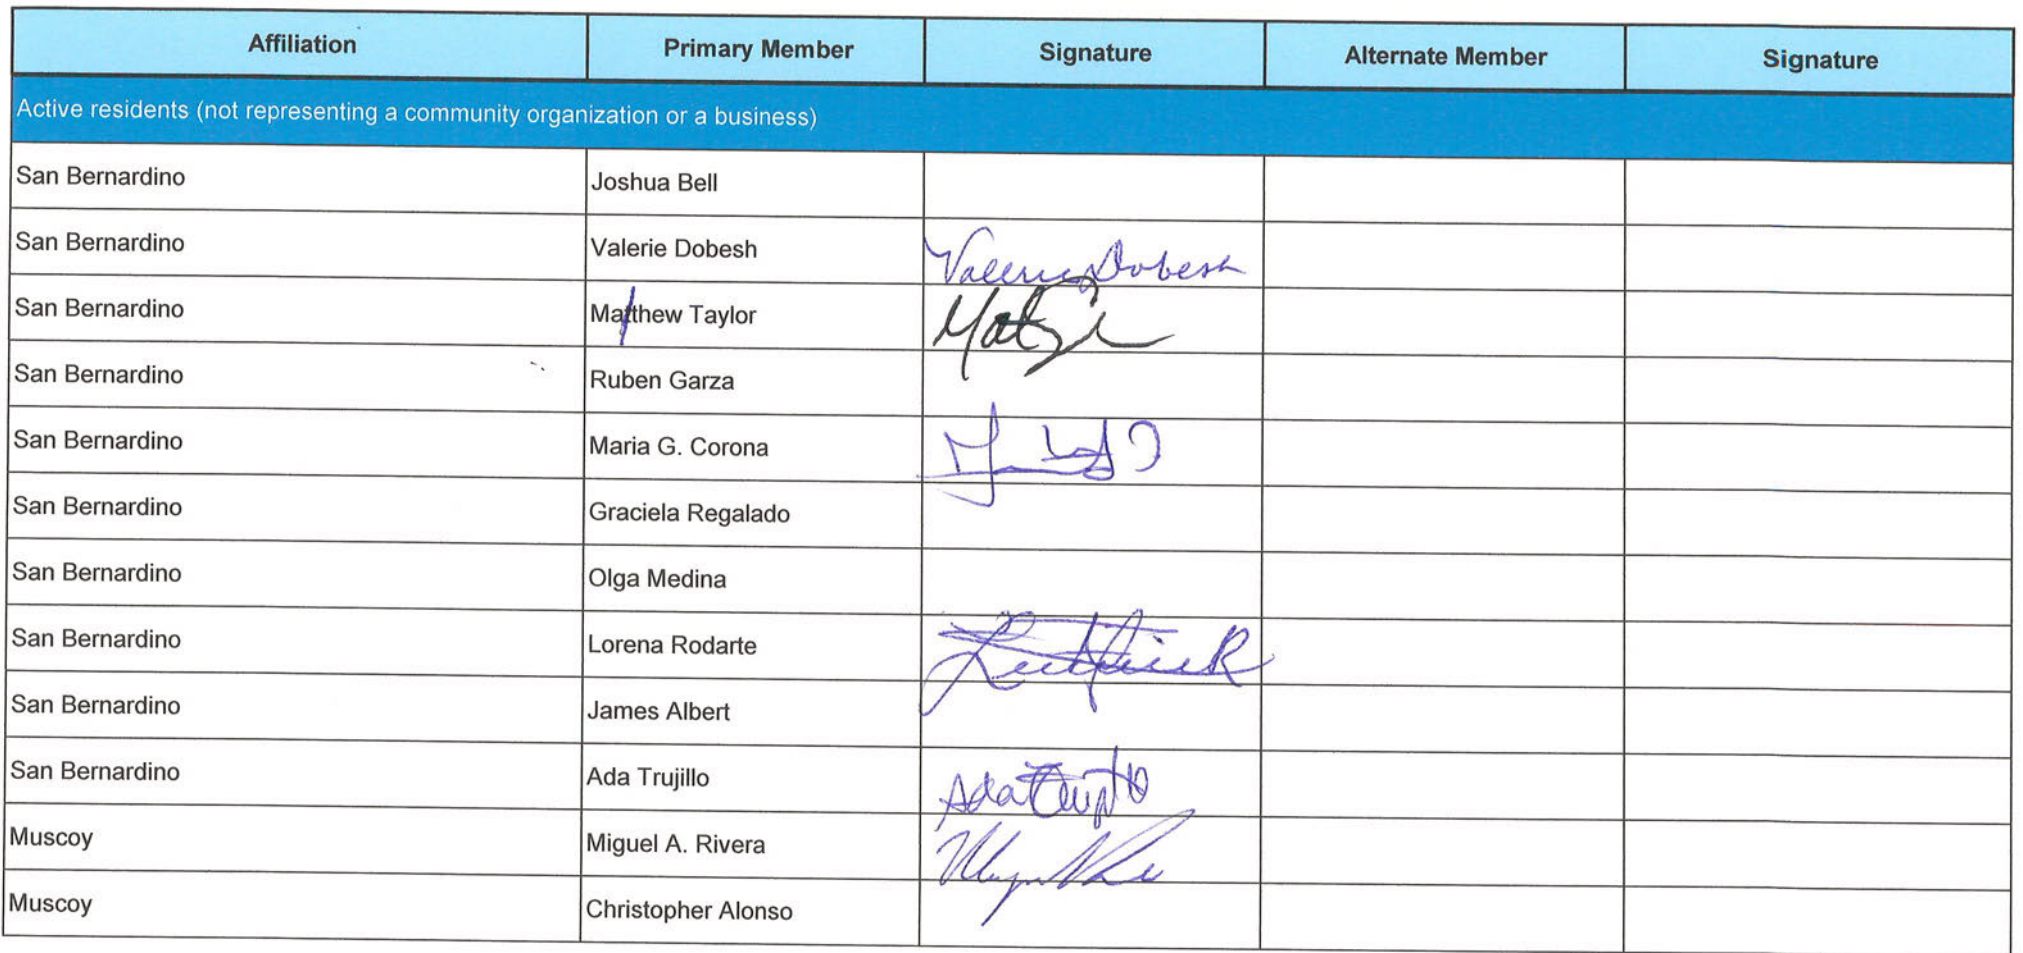 Affiliation Primary Member Signature Alternate Member Signature
Active residents (not representing a community organization or a business)
San Bernardino Joshua Bell
San Bernardino Valerie Dobesh Valerie Dobesh
San Bernardino Matthew Taylor
San Bernardino Ruben Garza
San Bernardino Maria G. Corona
San Bernardino Graciela Regalado
San Bernardino Olga Medina
San Bernardino Lorena Rodarte
San Bernardino James Albert
San Bernardino Ada Trujillo Ada Trujillo
Muscoy Miguel A. Rivera
Muscoy Christopher Alonso